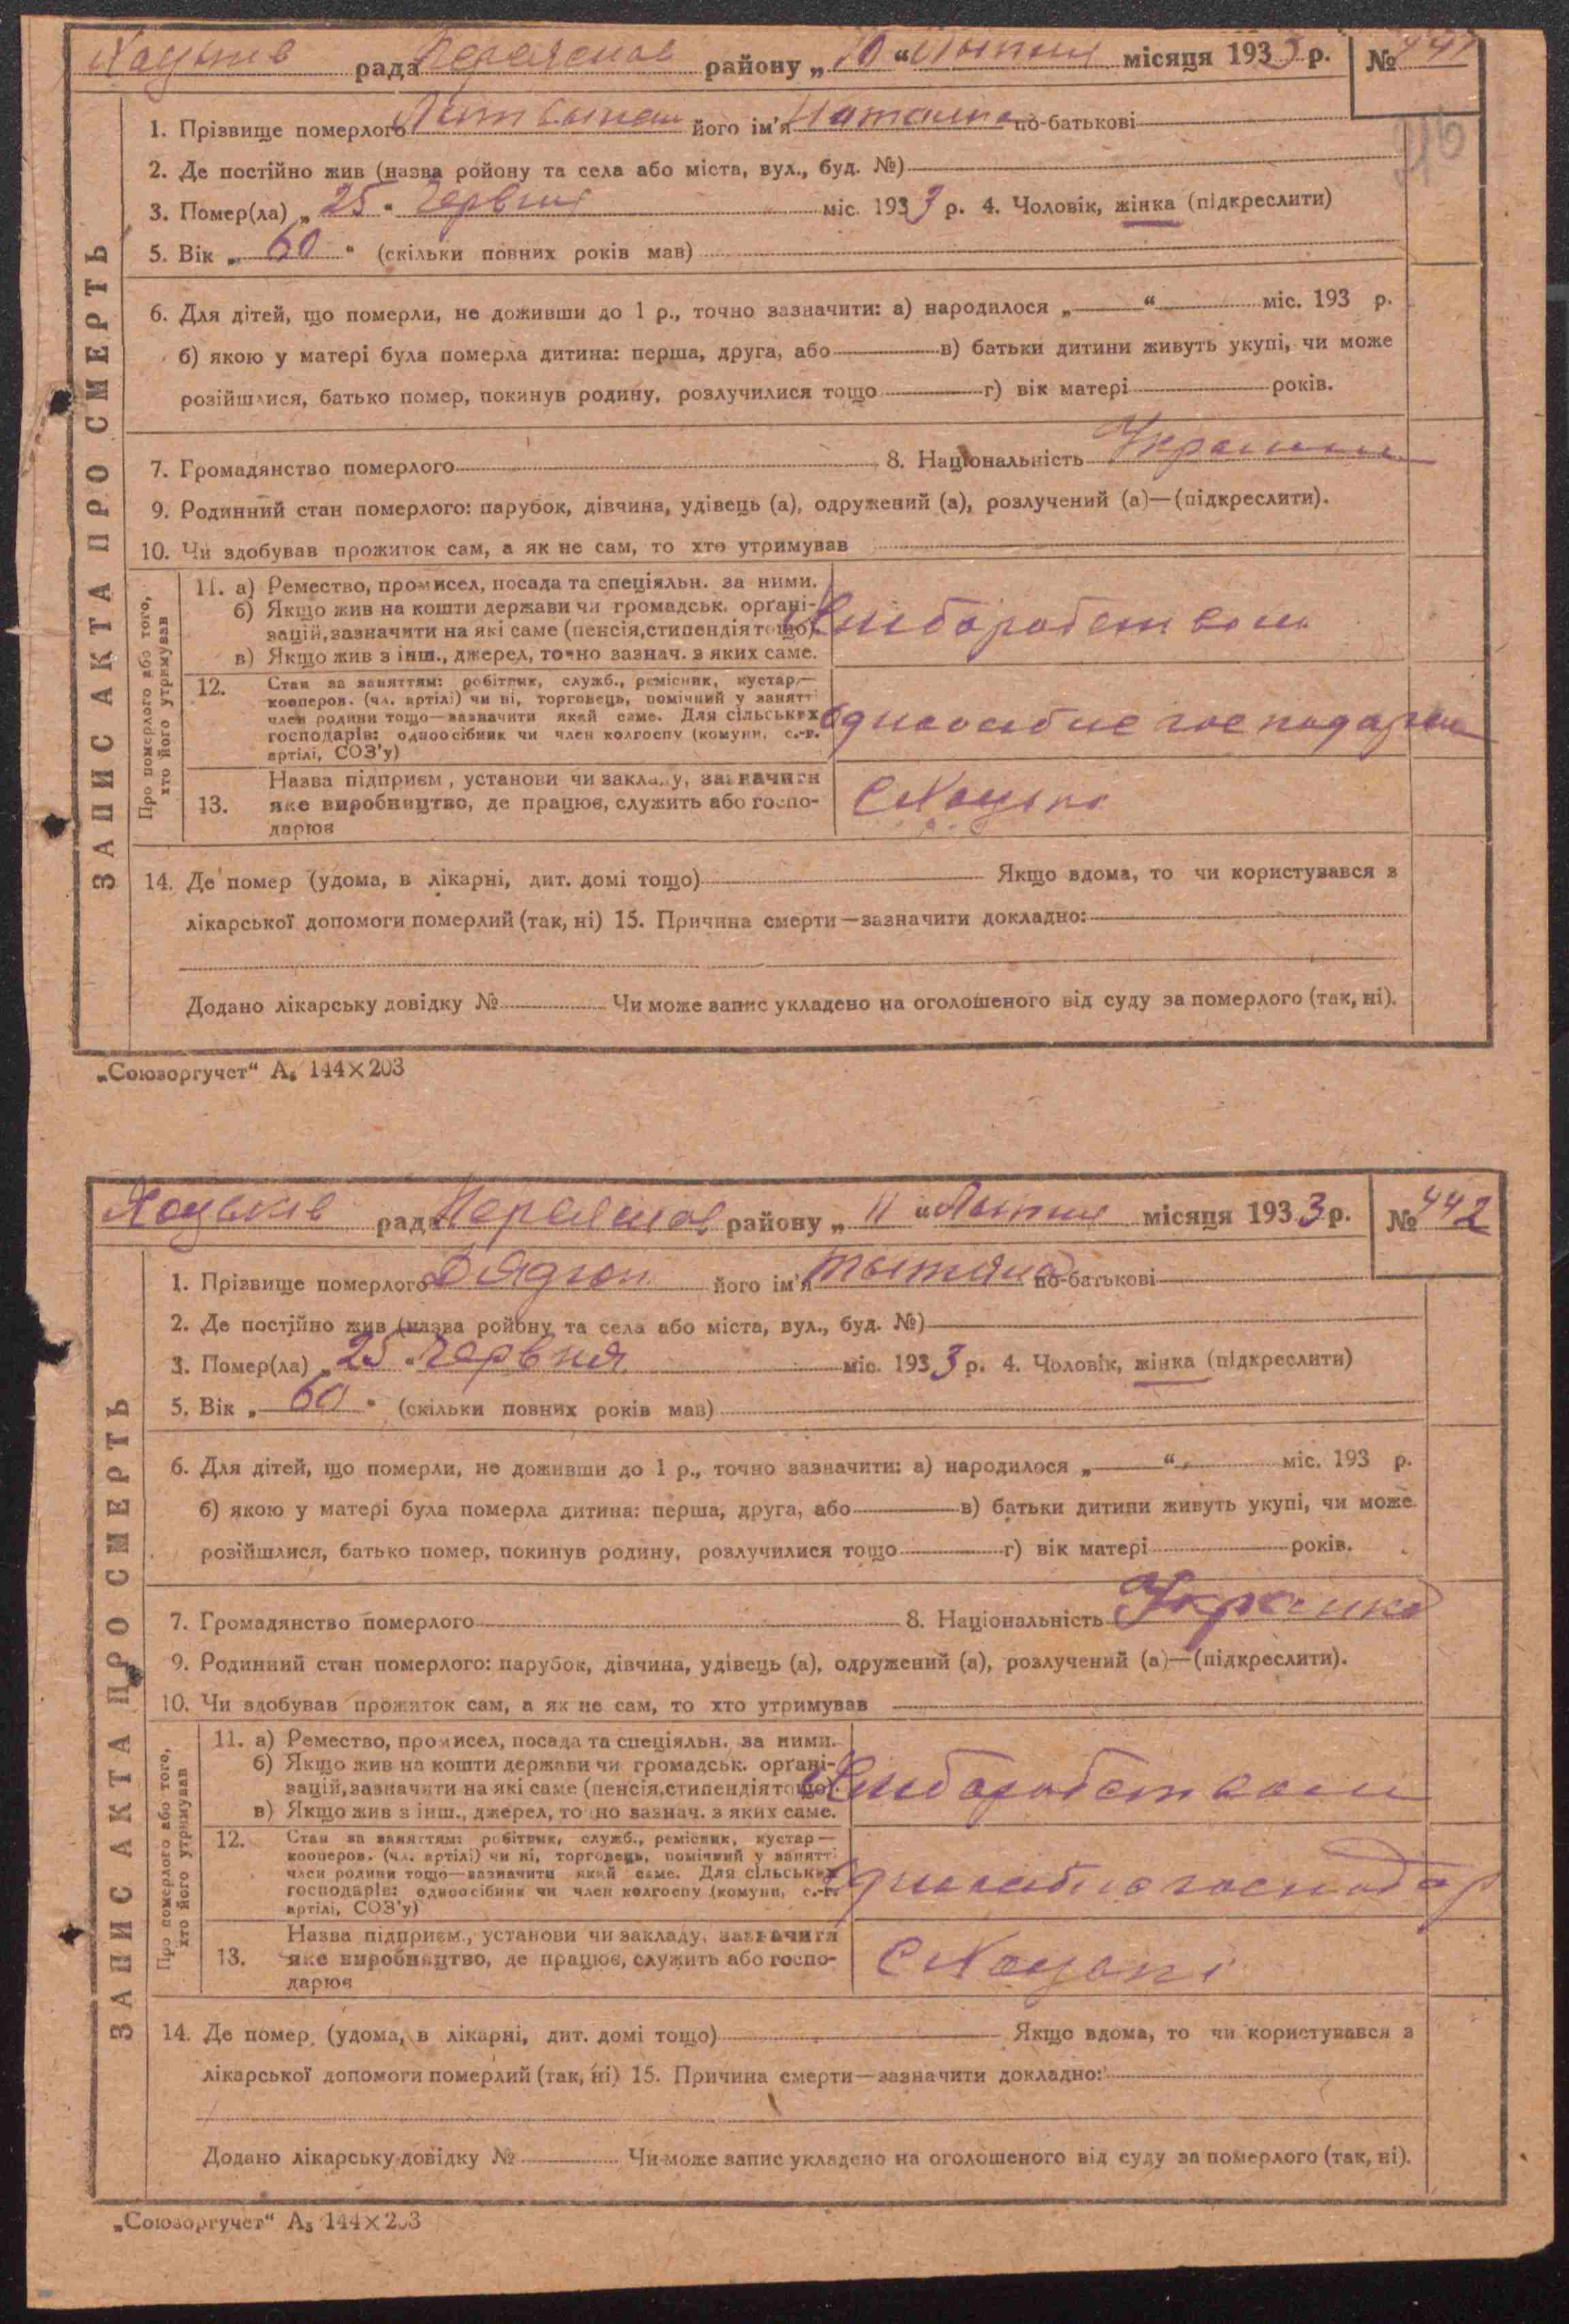 Хоцьків рада Переяслов району „ 10 “ Липня місяця 1933 р. № 441
1. Прізвище померлого його ім'я Наталка по-батькові
2. Де постійно жив (назва ройону та села або міста, вул., буд. №)
3. Помер(ла) „ 25 “ Червня міс. 1933 р. 4. Чоловік, жінка (підкреслити)
5. Вік „ 60 “ (скільки повних років мав)
6. Для дітей, що померли, не доживши до 1 р., точно зазначити: а) народилося „ “ міс. 193 р.
б) якою у матері була померла дитина: перша, друга, або в) батьки дитини живуть укупі, чи може
розійшлися, батько помер, покинув родину, розлучилися тощо г) вік матері років.
7. Громадянство померлого 8. Національність
9. Родинний стан померлого: парубок, дівчина, удівець (а), одружений (а), розлучений (а)—(підкреслити).
10. Чи здобував прожиток сам, а як не сам, то хто утримував
ЗАПИС АКТА ПРО СМЕРТЬ
Про померлого або того,
хто його утримував
11. а) Ремество, промисел, посада та спеціяльн. за ними.
б) Якщо жив на кошти держави чи громадськ. орґані-
зацій, зазначити на які саме (пенсія, стипендія тощо).
в) Якщо жив з інш., джерел, точно зазнач. з яких саме.
Хліборобством
12. Стан за заняттям: робітник, служб., ремісник, кустар—
кооперов. (чл. артілі) чи ні, торговець, помічний у занятті
член родини тощо—зазначити який саме. Для сільських
господарів: одноосібник чи член колгоспу (комуни, с.-г.
артілі, СОЗ'у)
13. Назва підприєм., установи чи закладу, зазначити
яке виробництво, де працює, служить або госпо-
дарює
С Хоцьки
14. Де помер (удома, в лікарні, дит. домі тощо) Якщо вдома, то чи користувався з
лікарської допомоги померлий (так, ні) 15. Причина смерти—зазначити докладно:
Додано лікарську довідку № Чи може запис укладено на оголошеного від суду за померлого (так, ні).
„Союзоргучет“ А₅ 144×203
Хоцьків рада Переяслов району „ 11 “ Липня місяця 1933 р. № 442
1. Прізвище померлого Дядюн його ім'я Тытяна по-батькові
2. Де постійно жив (назва ройону та села або міста, вул., буд. №)
3. Помер(ла) „ 25 “ Червня міс. 1933 р. 4. Чоловік, жінка (підкреслити)
5. Вік „ 60 “ (скільки повних років мав)
6. Для дітей, що померли, не доживши до 1 р., точно зазначити: а) народилося „ “ міс. 193 р.
б) якою у матері була померла дитина: перша, друга, або в) батьки дитини живуть укупі, чи може
розійшлися, батько помер, покинув родину, розлучилися тощо г) вік матері років.
7. Громадянство померлого 8. Національність
9. Родинний стан померлого: парубок, дівчина, удівець (а), одружений (а), розлучений (а)—(підкреслити).
10. Чи здобував прожиток сам, а як не сам, то хто утримував
ЗАПИС АКТА ПРО СМЕРТЬ
Про померлого або того,
хто його утримував
11. а) Ремество, промисел, посада та спеціяльн. за ними.
б) Якщо жив на кошти держави чи громадськ. орґані-
зацій, зазначити на які саме (пенсія, стипендія тощо).
в) Якщо жив з інш., джерел, точно зазнач. з яких саме.
Хліборобством
12. Стан за заняттям: робітник, служб., ремісник, кустар—
кооперов. (чл. артілі) чи ні, торговець, помічний у занятті
член родини тощо—зазначити який саме. Для сільських
господарів: одноосібник чи член колгоспу (комуни, с.-г.
артілі, СОЗ'у)
13. Назва підприєм., установи чи закладу, зазначити
яке виробництво, де працює, служить або госпо-
дарює
С Хоцькі
14. Де помер (удома, в лікарні, дит. домі тощо) Якщо вдома, то чи користувався з
лікарської допомоги померлий (так, ні) 15. Причина смерти—зазначити докладно:
Додано лікарську довідку № Чи може запис укладено на оголошеного від суду за померлого (так, ні).
„Союзоргучет“ А₅ 144×203